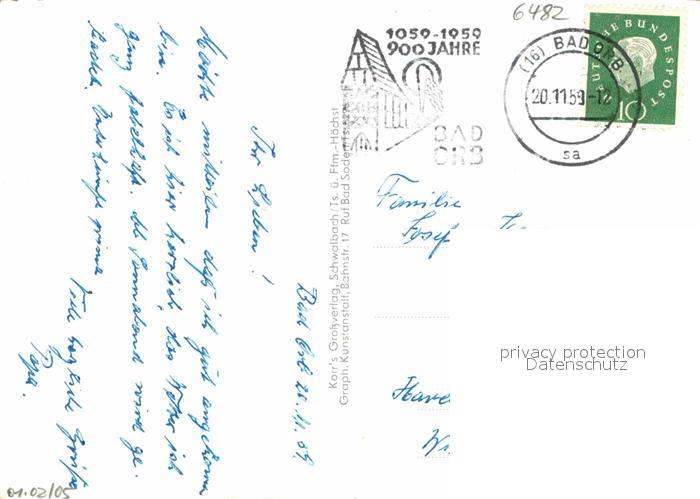 6482
1059-1959
900 JAHRE
BAD
ORB
(16) BAD ORB
20.11.59-12
sa
DEUTSCHE BUNDESPOST
10
Bad Orb 20.11.59
Ihr Lieben!
Möchte mitteilen daß ich gut angekommen
bin. Es ist hier herrlich, das Wetter ist
ganz fabelhaft.
Viele herzliche Grüße
Papa.
Korr's Großverlag, Schwalbach/Ts. ü. Ffm.-Höchst
Graph. Kunstanstalt, Bahnstr. 17 Ruf Bad Soden/Ts.
Familie
Josef
Have
privacy protection
Datenschutz
01.02/05